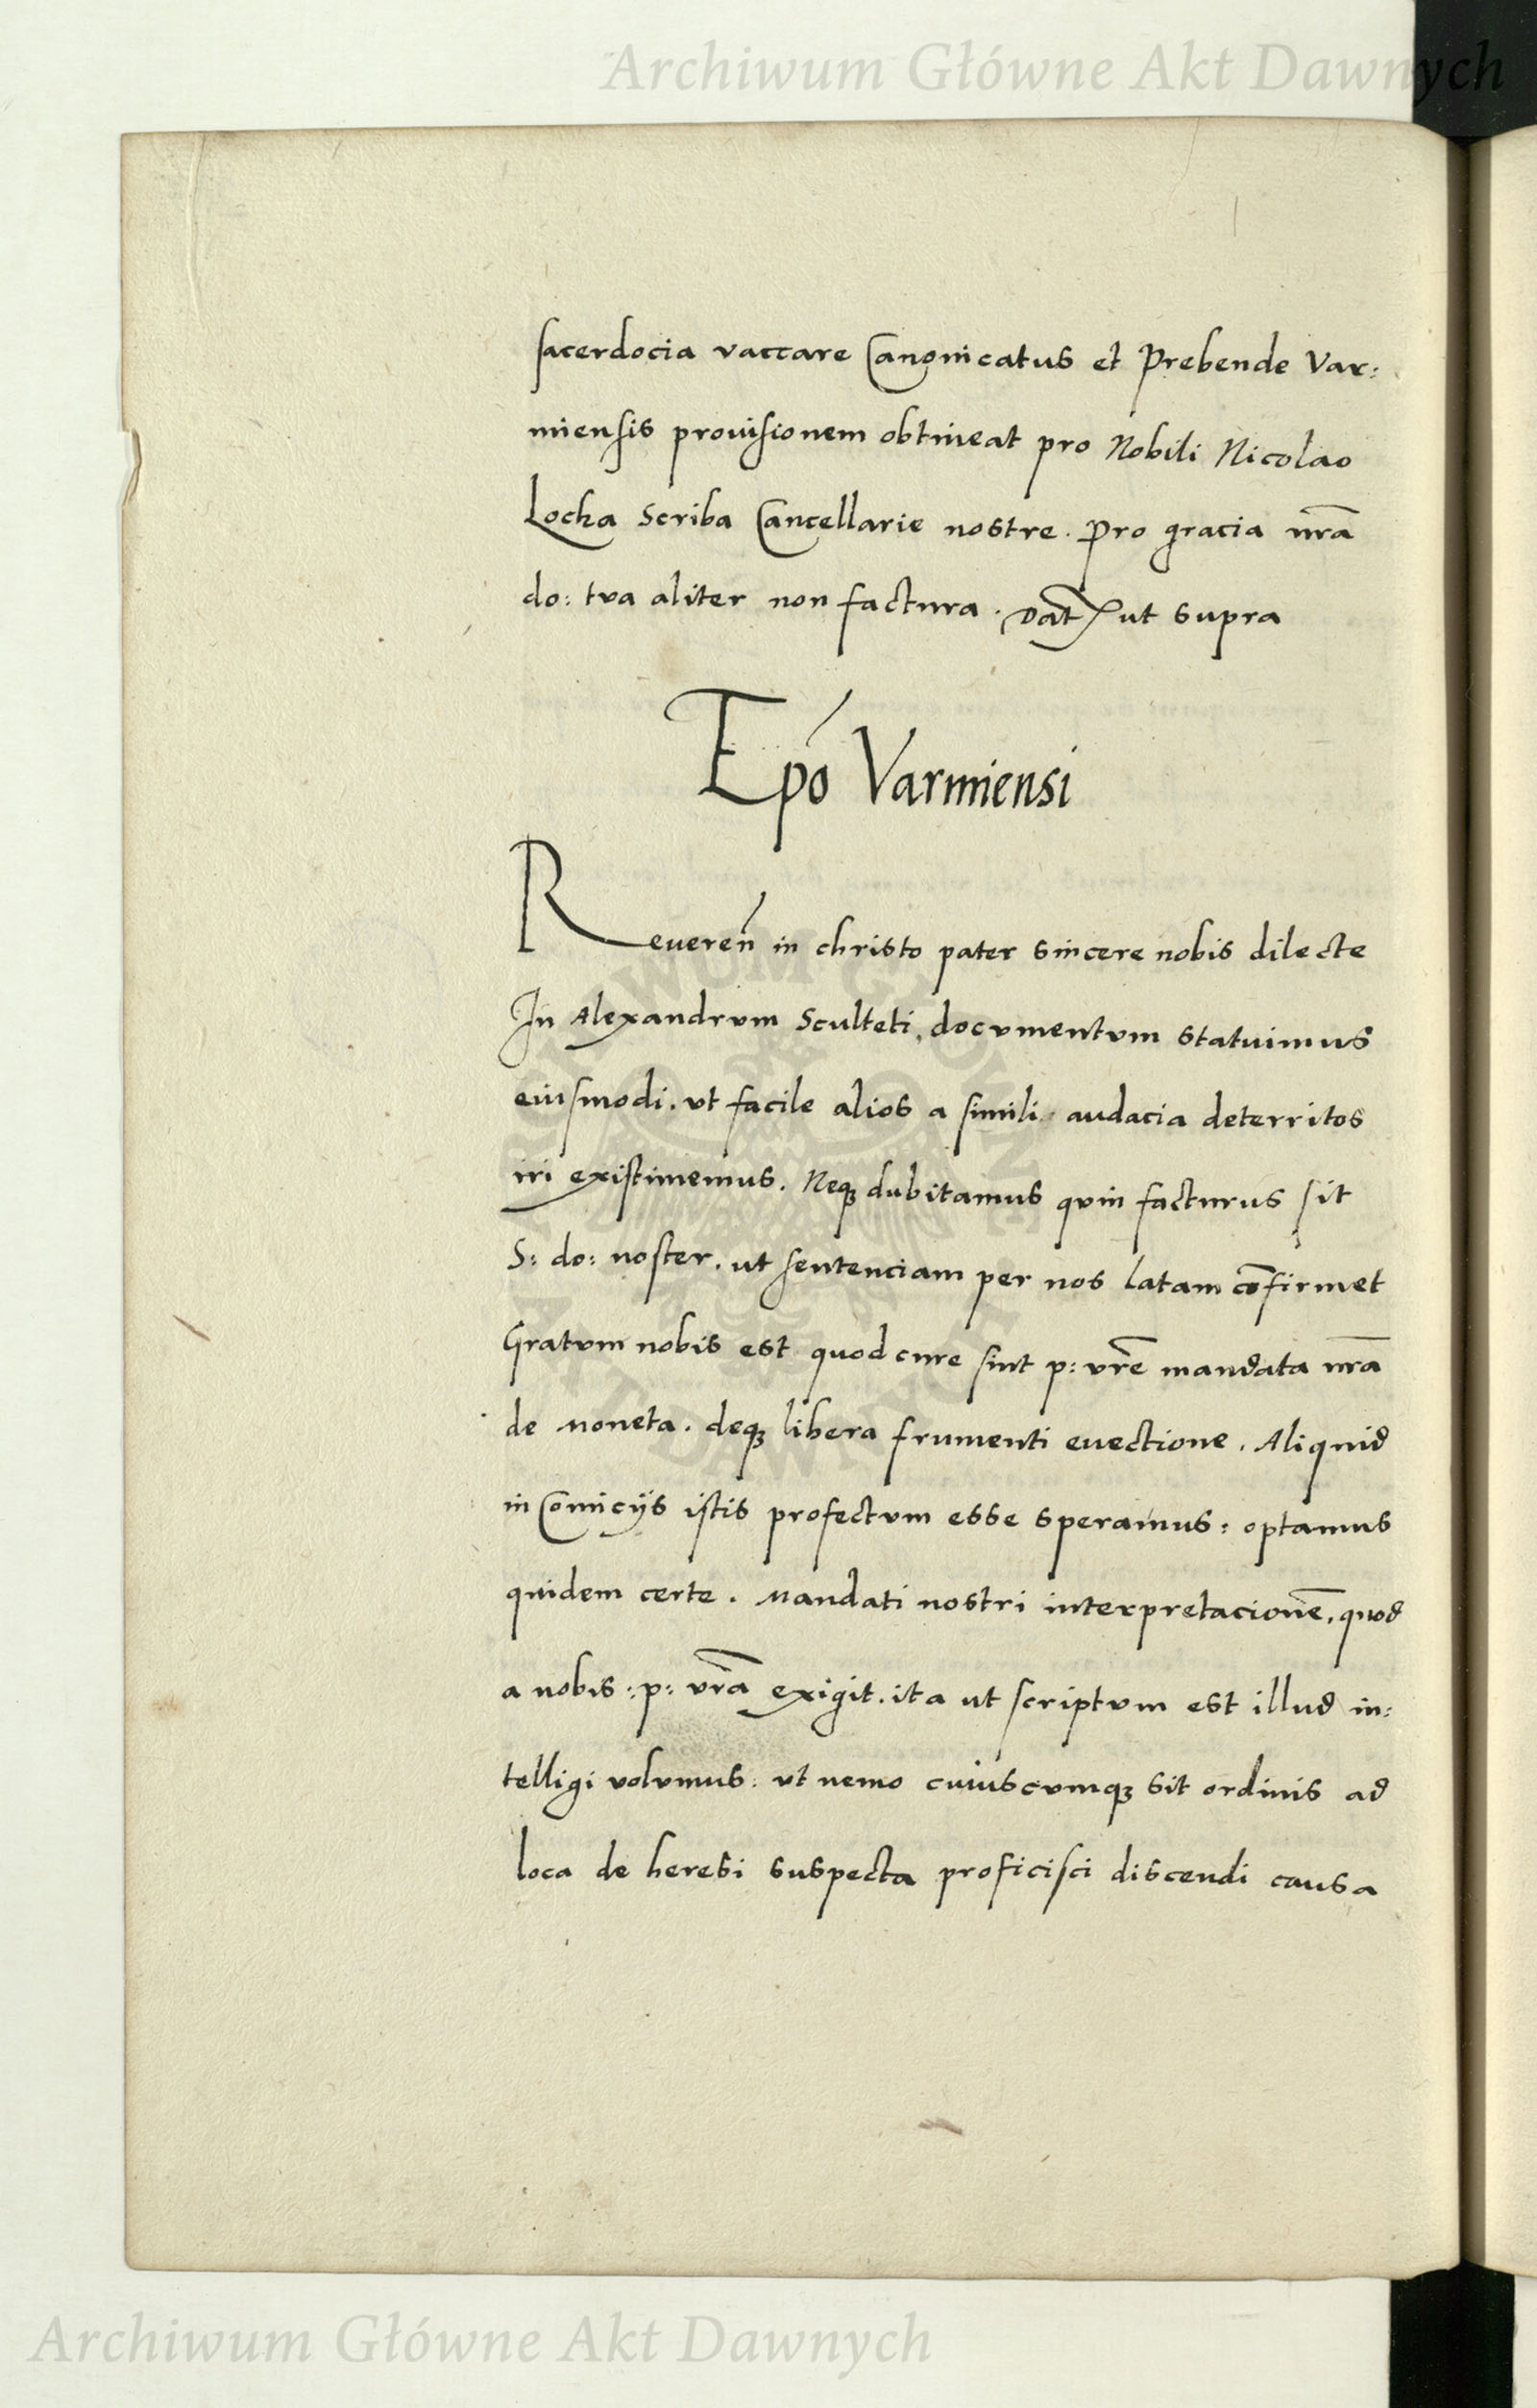 Archiwum Główne Akt Dawnych
sacerdocia vaccare Canonicatus et Prebende Var:
miensis prouisionem obtineat pro Nobili Nicolao
Locka Scriba Cancellarie nostre. Pro gracia nr̃a
do: tua aliter non factura. Dat̃ ut supra
Ep̃o Varmiensi
Reueren̄ in christo pater sincere nobis dilecte
In Alexandrum Sculteti, documentum statuimus
eiusmodi. ut facile alios a simili audacia deterritos
iri existimemus. Neqꝫ dubitamus quin facturus sit
S: do: noster. ut sentenciam per nos latam cõfirmet
Gratum nobis est quod cure sint p: vr̃e mandata nr̃a
de moneta. deqꝫ libera frumenti euectione. Aliquid
in Comicijs istis profectum esse speramus: optamus
quidem certe. Mandati nostri interpretacionẽ, quod
a nobis: p: vr̃a exigit. ita ut scriptum est illud in:
telligi volumus: ut nemo cuiuscumqꝫ sit ordinis ad
loca de heresi suspecta proficisci discendi causa
Archiwum Główne Akt Dawnych